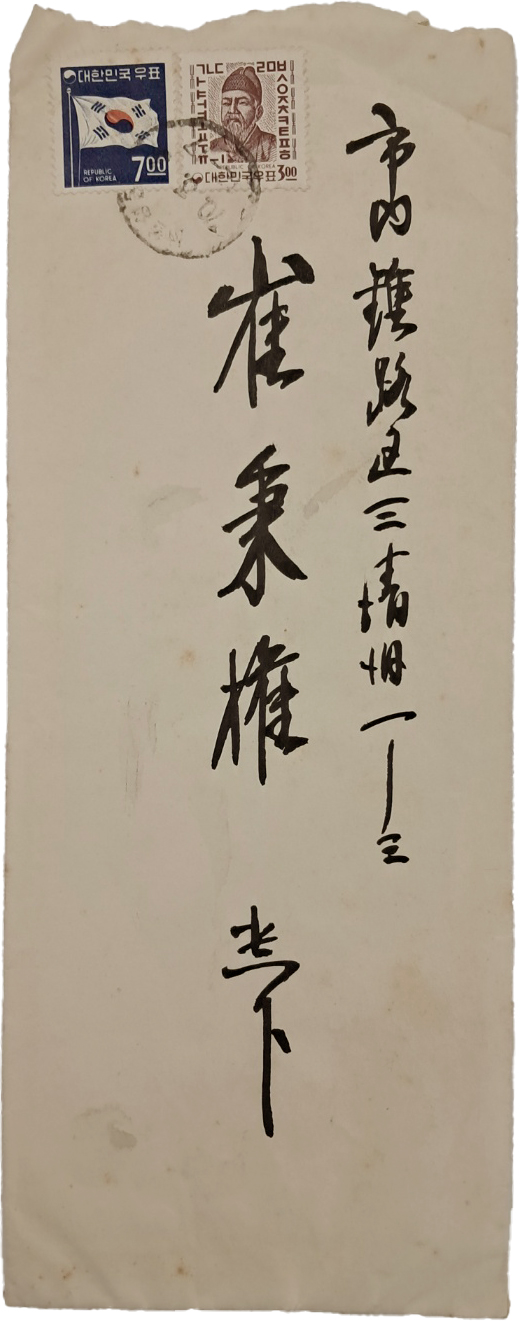 대한민국우표
REPUBLIC
OF KOREA
7.00
ㄱㄴㄷ ㄹㅁㅂ
ㅅㅇㅈㅊㅋㅌㅍㅎ
ㅏㅑㅓㅕㅗㅛㅜㅠㅡㅣ
REPUBLIC OF KOREA
대한민국우표 3.00
市内 鍾路区 三清洞 一—三
崔秉權 座下